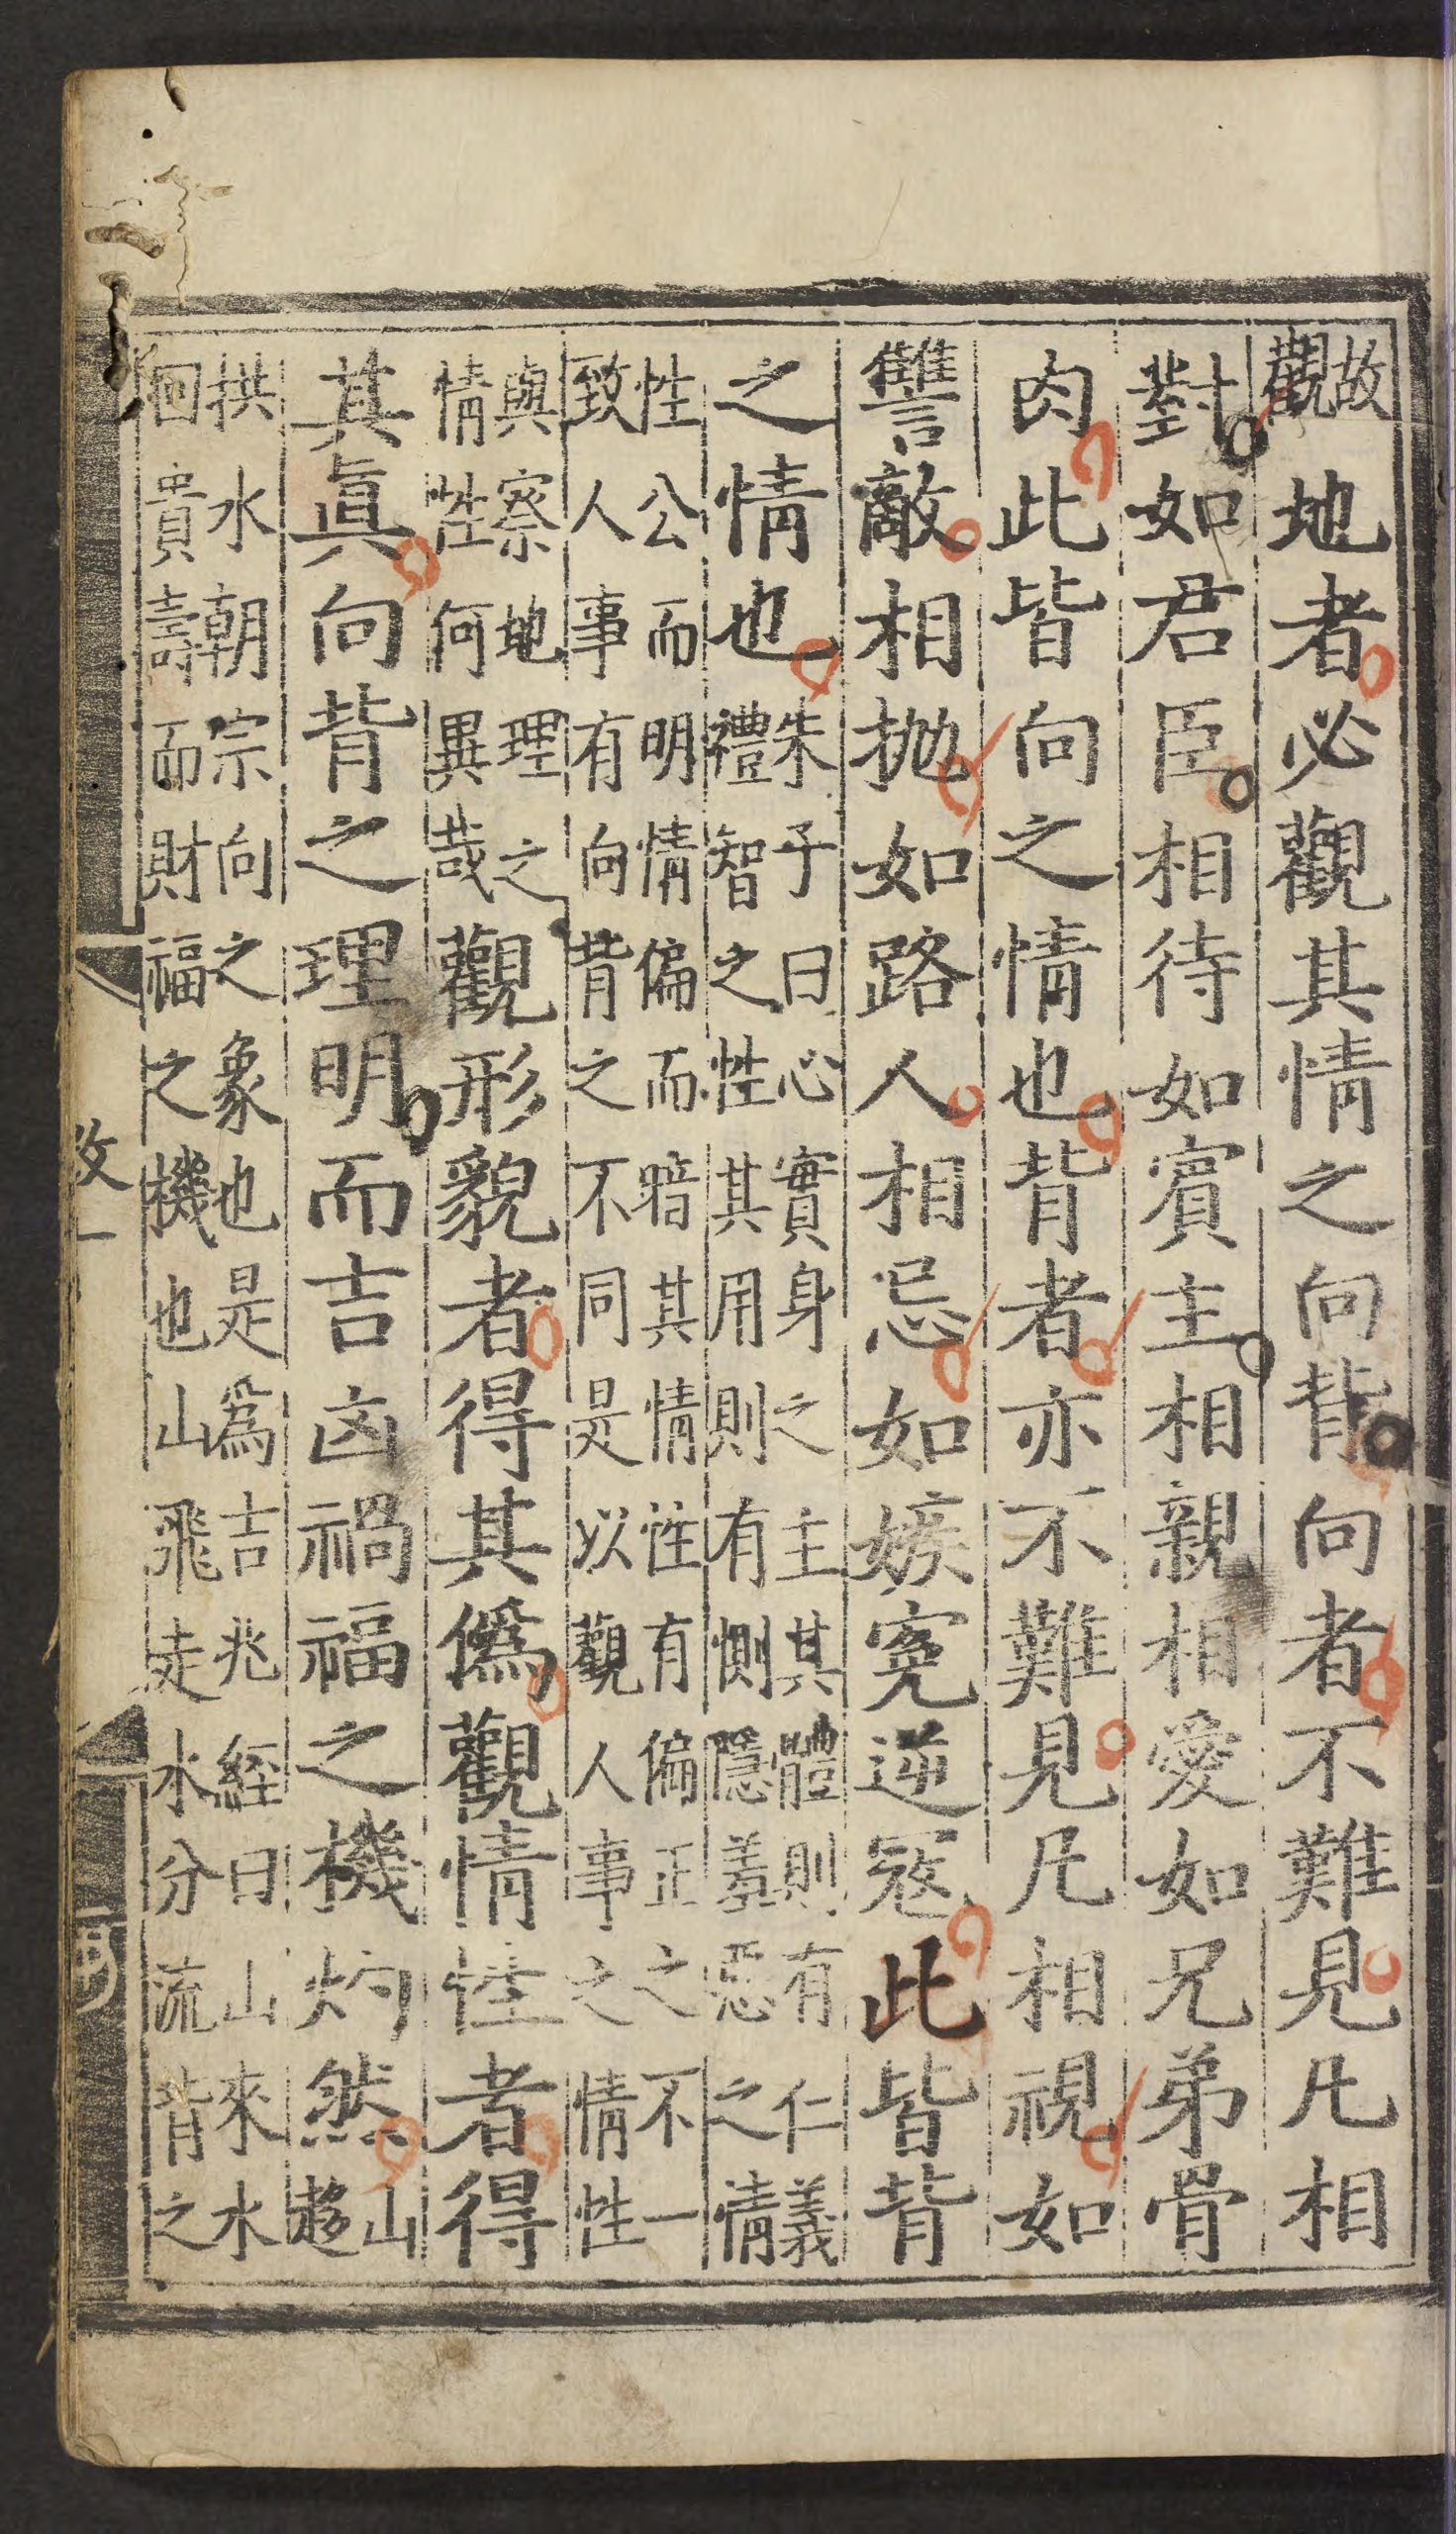 故觀地者必觀其情之向背向者不難見凡相
對如君臣相待如賓主相親相愛如兄弟骨
肉此皆向之情也背者亦不難見凡相視如
讐敵相抛如路人相忌如嫉寃逆冦此皆背
之情也朱子曰心實身之主其體則有仁義
禮智之性其用則有惻隱羞惡之情
性公而明情偏而暗其情性有偏正之不一
致人事有向背之不同是以觀人事之情性
與察地理之
情性何異哉觀形貌者得其僞觀情性者得
其眞向背之理明而吉凶禍福之機灼然山
趍
拱水朝宗向之象也是爲吉兆経曰山來水
回貴壽而財福之機也山飛走水分流背之